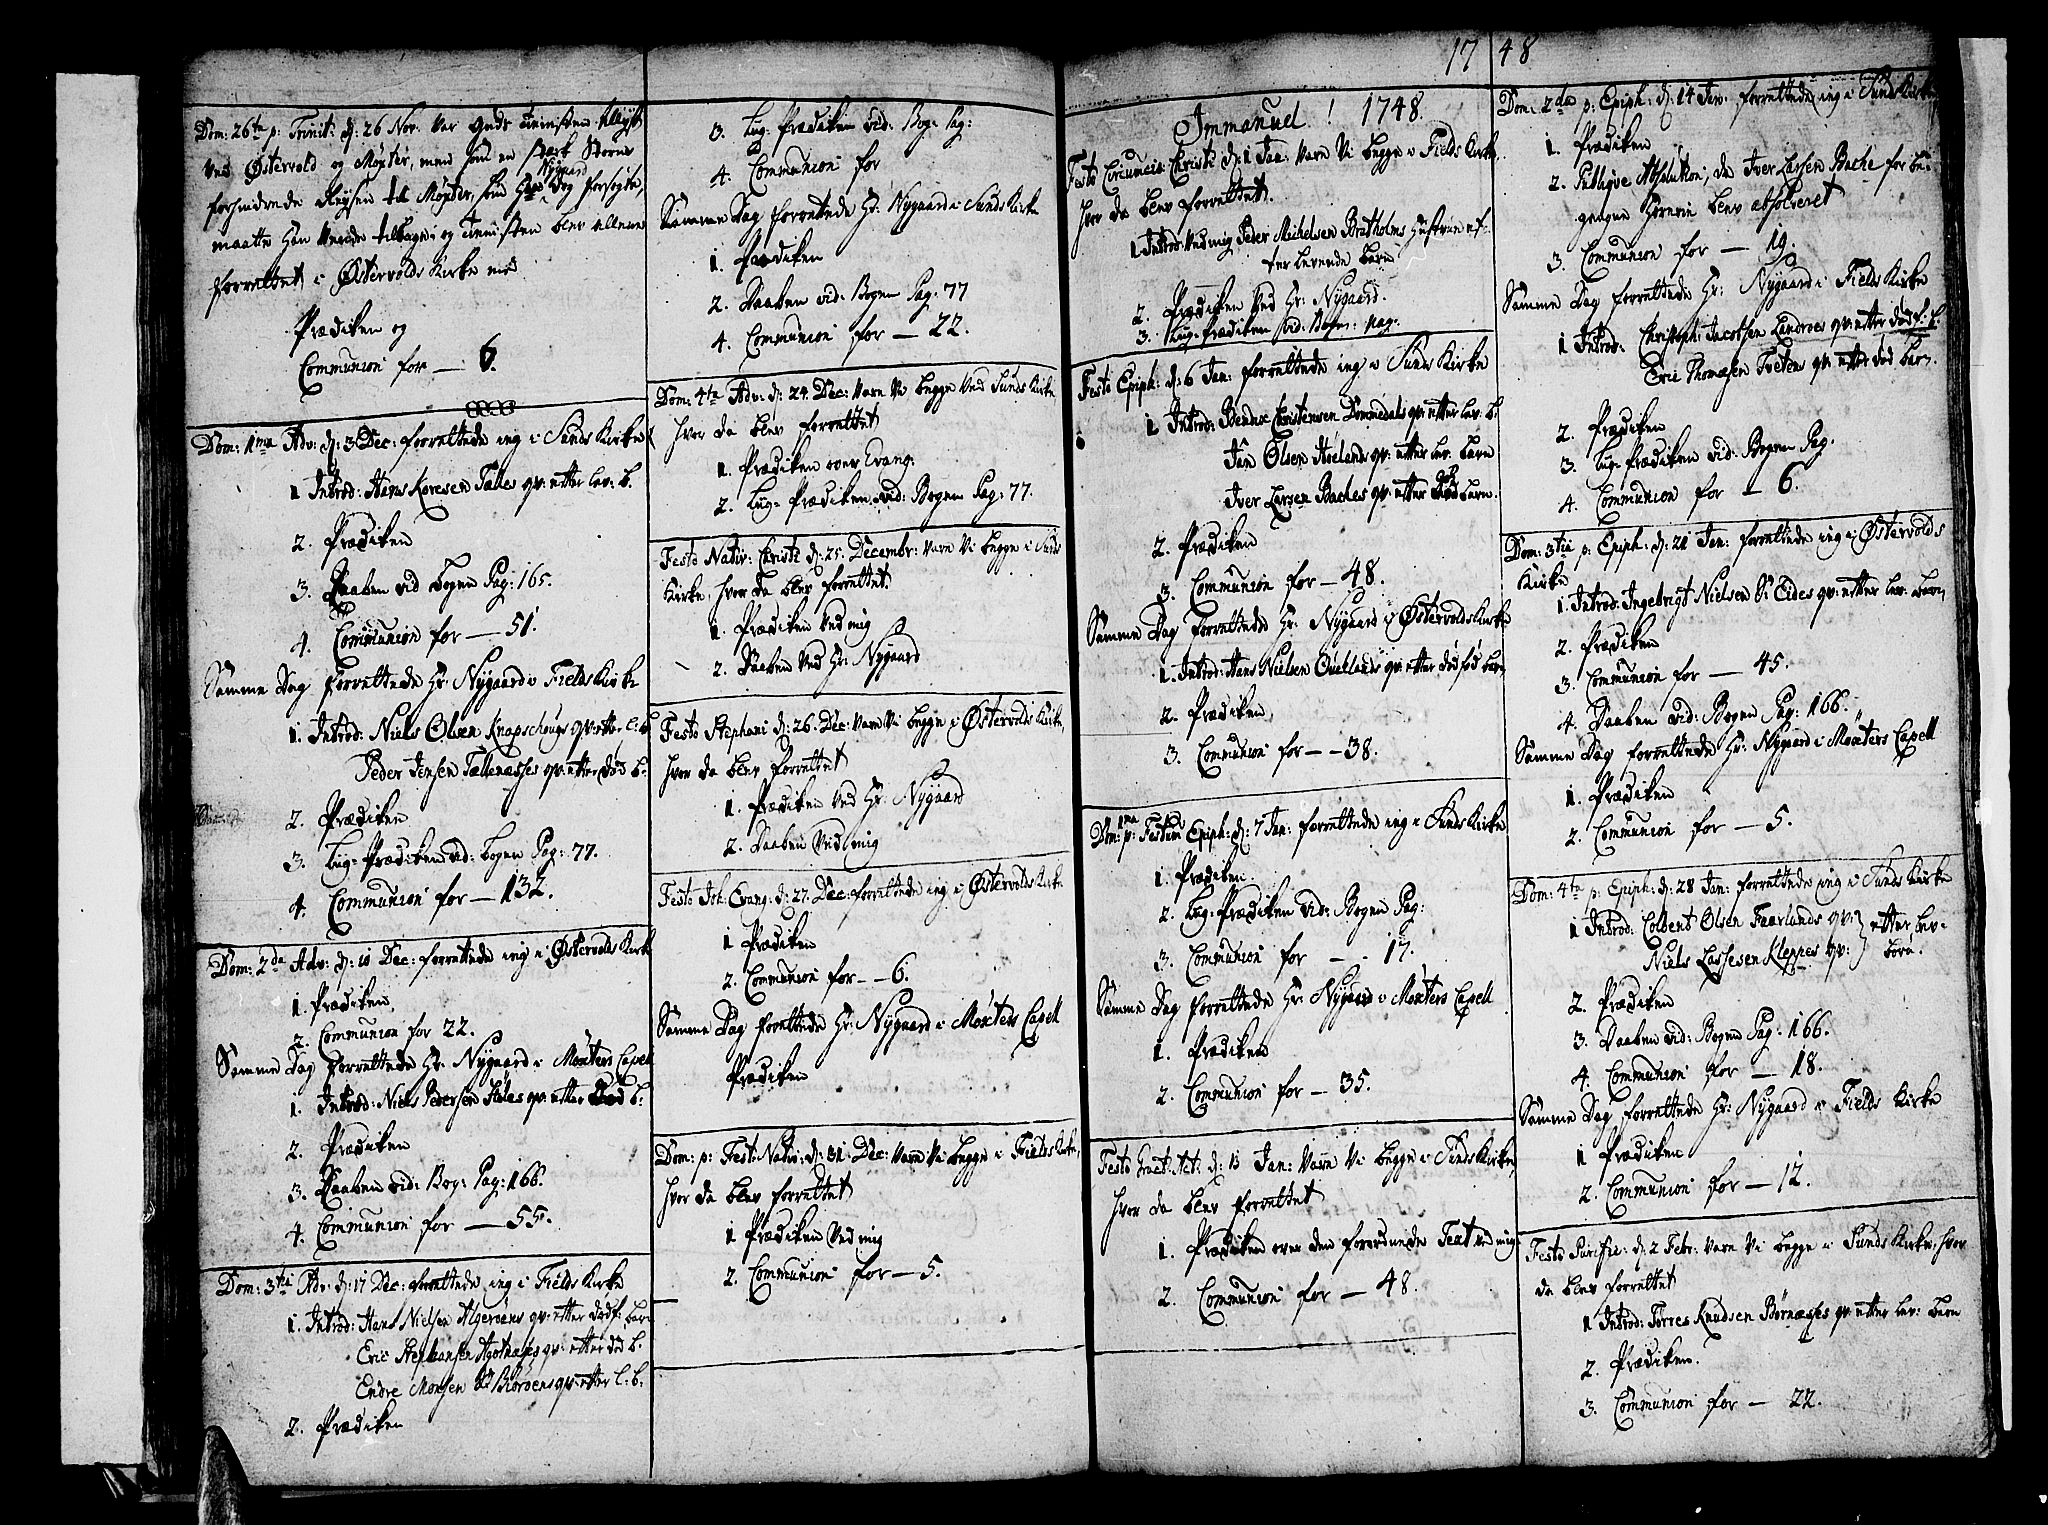 Dom: 26te p: Trinit: d: 26 Nov. var Guds tienisten tillyst
ved Østervold og Møxter, men som en stærk Storm
forhindrede Reysen til Møxter, som Hr: Nygaard dog forsøgte,
maatte Han vende tilbage, og tienisten blev allene
forrettet i Østervolds Kirke med
Prædiken og
Communion for — 6.
Dom: 1ma Adv: d: 3 Dec: forrettede ieg i Sunds Kirke
1 Introd: Hans Koresen Tælles qv: efter lev: b.
2. Prædiken
3. Daaben vid Bogen Pag: 165.
4. Communion for — 51.
Samme Dag forrettede Hr: Nygaard i Fields Kirke
1. Introd: Niels Olsen Knapschougs qv: efter l: b
Peder Jensen Tællenæsses qv: efter død b:
2. Prædiken
3. Liig-Prædiken vid: bogen Pag: 77.
4. Communion for — 132.
Dom: 2da Adv: d: 10 Dec: forrettede ieg i Østervolds Kirke
1. Prædiken,
2. Communion for 22.
Samme Dag forrettede Hr: Nygaard i Møxters Capell
1. Introd: Niels Pedersen qv: efter død b:
2. Prædiken
3. Daaben vid: Bog: Pag: 166.
4. Communion for — 55.
Dom: 3tia Adv: d: 17 Dec: forrettede ieg i Fields Kirke
1. Introd: Hans Nielsen Algerøens qv: efter dødf: barn
Eric Stephansen Agotnæsses qv: efter død b.
Endre Monsen Biørøens qv: efter l: b.
2. Prædiken
3. Liig-Prædiken vid: Bog: Pag:
4. Communion for
Samme Dag forrettede Hr: Nygaard i Sunds Kirke
1. Prædiken
2. Daaben vid: Bogen Pag: 77
4. Communion for — 22.
Dom: 4ta Adv: d: 24. Dec: vare Vi begge ved Sunds Kirke
hvor da blev forrettet
1. Prædiken over Evang:
2. Liig-Prædiken, vid: Bogen Pag: 77.
Festo Nativ: Christi d: 25. Decembr: vare Vi begge i Sunds
Kirke, hvor da blev forrettet.
1. Prædiken ved mig
2. Daaben ved Hr: Nygaard
Festo Stephani d: 26. Dec: vare Vi begge i Østervolds Kirke,
hvor da blev forrettet
1. Prædiken ved Hr: Nygaard
2. Daaben ved mig
Festo Joh: Evang: d: 27. Dec: forrettede ieg i Østervolds Kirke
1 Prædiken
2. Communion for — 6.
Samme Dag forrettede Hr: Nygaard i Møxters Capell
Prædiken
Dom: p: Fest: Nativ: d: 31 Dec: vare Vi begge i Fields Kirke,
hvor da blev forrettet
1 Prædiken ved mig
2. Communion for — 5.
1748
Immanuel! 1748.
Festo Circumcis: Christi d: 1 Jan: vare Vi begge i Fields Kirke,
hvor da blev forrettet.
1 Introd: ved mig Peder Michelsen Bratholms Hustrue ef-
ter levende barn
2. Prædiken ved Hr: Nygaard.
3. Liig-Prædiken vid: Bogen: pag:
Festo Epiph: d: 6 Jan: forrettede ieg i Sunds Kirke
1 Introd: Christensen Dommedals qv: efter lev: b.
Jan Olsen Høelands qv: efter lev: barn
Iver Larsen Baches qv: efter død barn.
2. Prædiken
3. Communion for — 48.
Samme Dag forrettede Hr: Nygaard i Østervolds Kirke
1. Introd: Hans Nielsen qv: efter dødfød barn
2. Prædiken
3. Communion for — 38.
Dom: 1ma p: Festum Epiph: d: 7 Jan: forrettede ieg i Sunds Kirke
1. Prædiken.
2. Liig-Prædiken vid: Bogen Pag:
3. Communion for — 17.
Samme Dag forrettede Hr: Nygaard i Møxters Capell
1. Prædiken
2. Communion for — 35.
Festo Grat: Act: d: 13 Jan: vare Vi begge i Sunds Kirke,
hvor da blev forrettet
1. Prædiken over den forordnede Text ved mig
2. Communion for — 48.
Dom: 2da p: Epiph: d: 14 Jan: forrettede ieg i Sunds Kirke
1. Prædiken
2. Publiqve Absolution, da Iver Larsen Bache for be-
gangne Horerie blev absolveret
3. Communion for — 19.
Samme Dag forrettede Hr: Nygaard i Fields Kirke
1 Introd: Christoph: Jacobsen Landroes qv: efter dødf: b.
Eric Thomæsen Tvetens qv: efter død barn.
2. Prædiken
3. Liig-Prædiken vid: Bogen Pag.
4. Communion for — 6.
Dom: 3tia p: Epiph: d: 21 Jan: forrettede ieg i Østervolds
Kirke
1. Introd: Ingebrigt Nielsen Eides qv: efter lev: barn,
2. Prædiken
3. Communion for — 45.
4. Daaben vid: Bogen Pag: 166.
Samme Dag forrettede Hr: Nygaard i Møxters Capell
1. Prædiken
2. Communion for — 5.
Dom: 4ta p: Epiph: d: 28 Jan: forrettede ieg i Sunds Kirke
1 Introd: Colbent Olsen Færlunds qv: } efter lev-
Niels Lassesen Kleppes qv: } børn.
2. Prædiken
3. Daaben vid: Bogen Pag: 166.
4. Communion for — 18.
Samme Dag forrettede Hr: Nygaard i Fields Kirke
1 Prædiken
2. Communion for — 12.
Festo Purific: d: 2 Febr: vare Vi begge i Sunds Kirke, hvor
da blev forrettet
1 Introd: Torres Knudsen Børnæsses qv: efter lev: barn
2. Prædiken.
3. Communion for — 22.